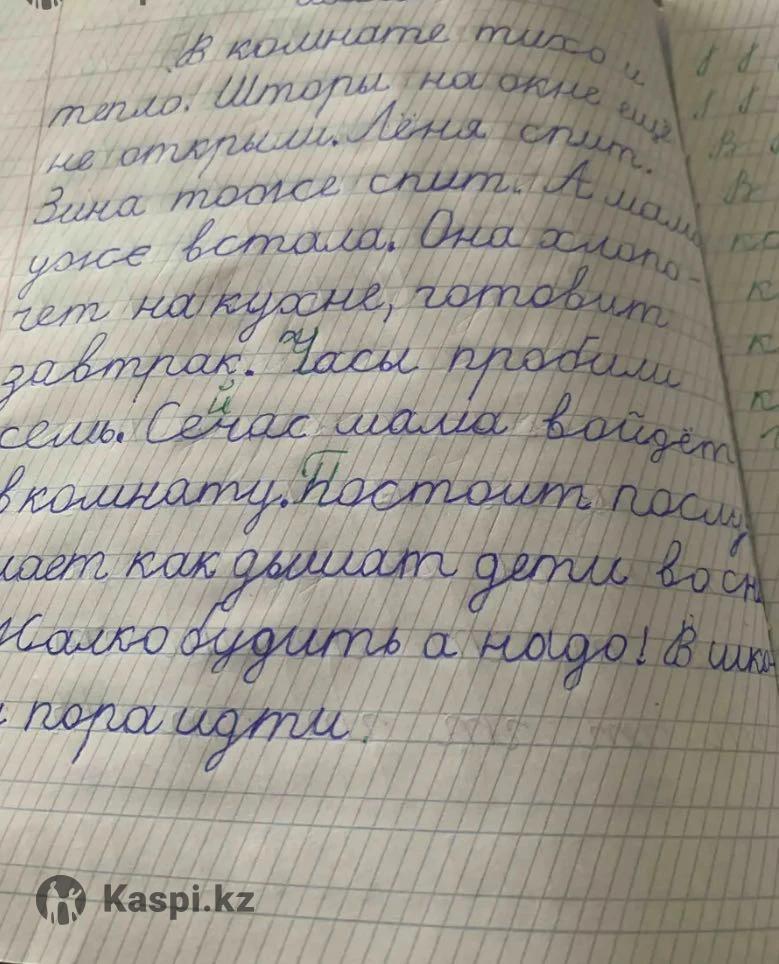 В комнате тихо и
тепло. Шторы на окне ещё
не открыли. Лёня спит.
Зина тоже спит. А мама
уже встала. Она хлопо-
чет на кухне, готовит
завтрак. Часы пробили
семь. Сейчас мама войдёт
в комнату. Постоит послу
шает как дышат дети во сн
Жалко будить а надо! В шко
пора идти.
Kaspi.kz